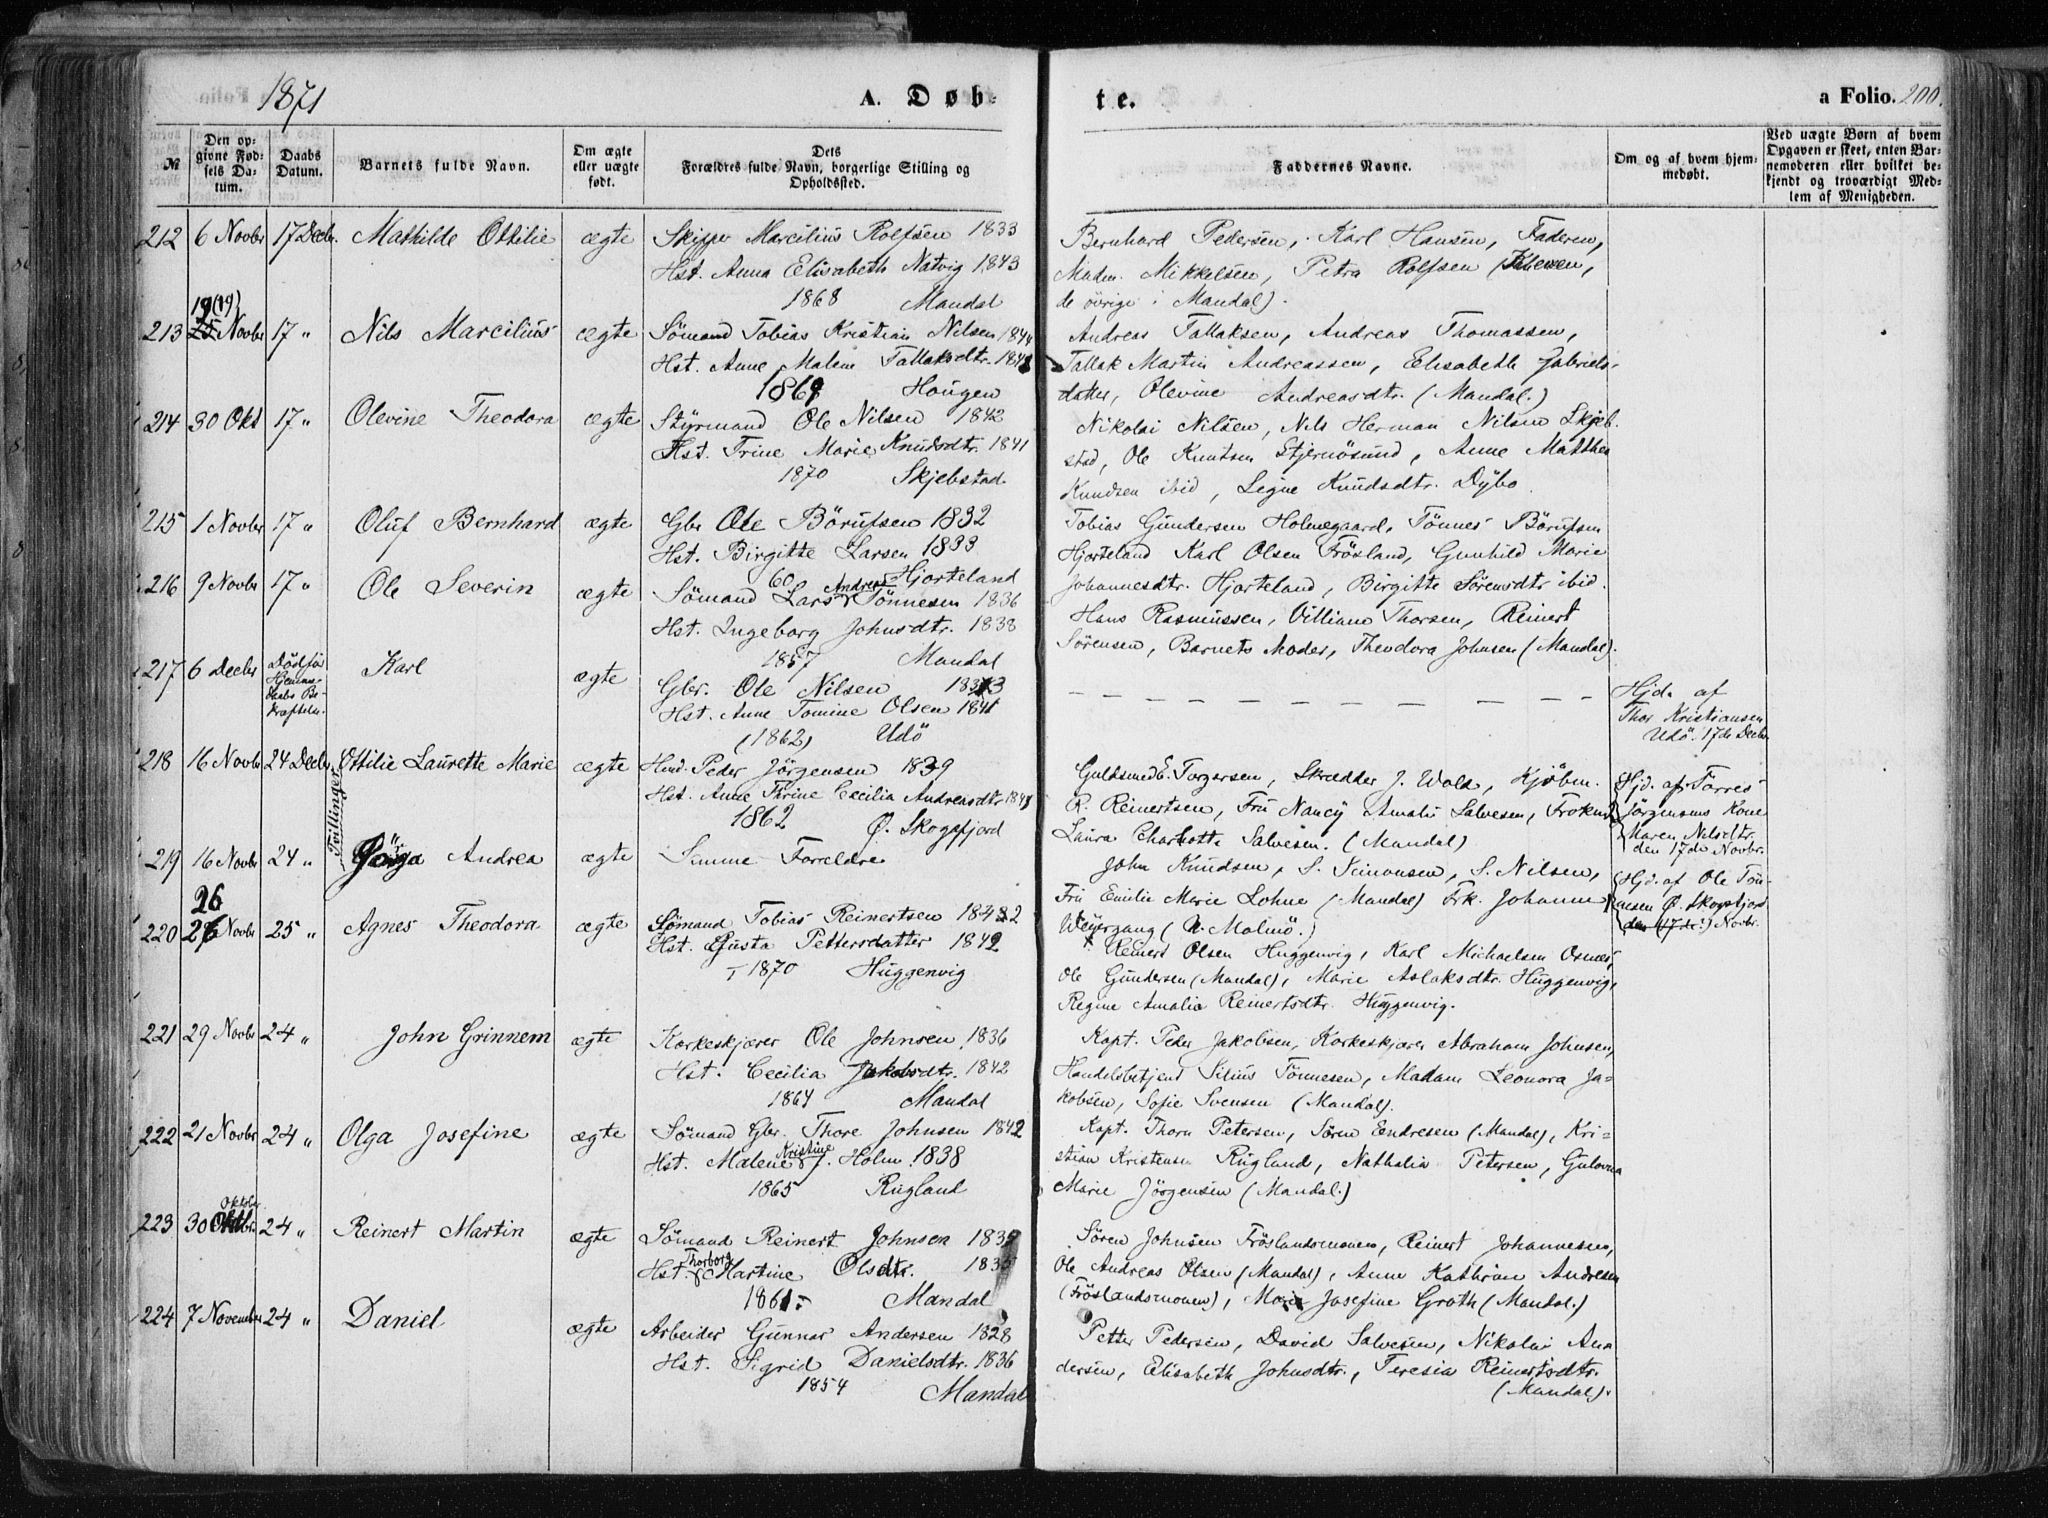 1871
A. Døb-
te.
a Folio. 200.
№
Den op-
givne Fød-
sels Da-
tum.
Daabs
Datum.
Barnets fulde Navn.
Om ægte
eller uægte
født.
Dets
Forældres fulde Navn, borgerlige Stilling og
Opholdssted.
Faddernes Navne.
Om og af hvem hjem-
medøbt.
Ved uægte Børn af hvem
Opgaven er skeet, enten Bar-
nemoderen eller hvilket be-
kjendt og troværdigt Med-
lem af Menigheden.
212 6 Novbr 17 Decbr. Mathilde Othilie ægte Skipper Marcilius Rolfsen 1833
Hst. Anna Elisabeth Natvig 1843
1868 Mandal
Bernhard Pedersen, Karl Hansen, Faderen,
Madm. Mikkelsen, Petra Rolfsen
de övrige i Mandal).
213 19 (19) Novbr 17 " Nils Marcilius ægte Sömand Tobias Kristian Nilsen 1844
Hst. Anne Malene Tallaksdtr. 1848
1869 Hougen
Andreas Tallaksen, Andreas Thomassen,
Tallak Martin Andreassen, Elisabeth Gabriels-
datter, Olevine Andreasdtr. (Mandal.)
214 30 Okt 17 " Olevine Theodora ægte Styrmand Ole Nilsen 1842
Hst. Trine Marie Knudsdtr. 1841
1870 Skjebstad
Nikolai Nilsen, Nils Herman Nilsen Skjeb-
stad, Ole Knutsen Stjernösund, Anne Malthea
Knudsen ibid, Signe Knudsdtr. Dybo
215 1 Novbr 17 " Oluf Bernhard ægte Gbr Ole Börufsen 1832
Hst. Birgitte Larsen 1833
60 Hjorteland
Tobias Gundersen Holmegaard, Tönnes Börufsen
Hjorteland Karl Olsen Frösland, Gunhild Marie
Johannesdtr. Hjorteland, Birgitte Sörensdtr ibid.
216 9 Novbr 17 " Ole Severin ægte Sömand Lars Andreas Tönnesen 1836
Hst. Ingeborg Johnsdtr. 1838
1857 Mandal
Hans Rasmussen, Villiam Thorsen, Reinert
Sörensen, Barnets Moder, Theodora Johnsen (Mandal).
217 6 Decbr Död för
Hjemme-
daabs Be-
kræftelse.
Karl ægte Gbr. Ole Nilsen 1833
Hst. Anne Tomine Olsen 1841
(1862) Udö
Hjd. af
Thor Kristiansen
Udö. 17de Decbr
218 16 Novbr 24 Decbr Ottilie Laurette Marie ægte Hmd. Peder Jörgensen 1839
Hst. Anne Thrine Cecilia Andreasdtr 1843
1862 Ø. Skogsfjord
Guldsmed E. Torgersen, Skrædder J. Wold, Kjöbm.
R. Reinertsen, Fru Nancy Amalie Salvesen, Fröken
Laura Charlotte Salvesen. (Mandal)
Hjd. af Torres
Jörgensens Kone
Maren Nilsdtr.
den 17de Novbr.
Tvillinger
219 16 Novbr 24 " Andrea ægte Samme Foreldre
John Knudsen, S. Simonsen, S. Nilsen,
Fru Emilie Marie Lohne (Mandal) Frk. Johanne
Weyergang (N. Malmö.)
Hjd. af Ole Tön-
nesen Ø. Skogsfjord
den (17de) Novbr.
220 26 Novbr 25 " Agnes Theodora ægte Sömand Tobias Reinertsen 1842
Hst. Gusta Pettersdatter 1842
1870 Huggenvig
Reinert Olsen Huggenvig, Karl Michaelsen Osnes,
Ole Gundersen (Mandal), Marie Aslaksdtr. Huggenvig,
Regine Amalia Reinertsdtr. Huggenvig.
221 29 Novbr 24 " John Grinnem ægte Korkeskjærer Ole Johnsen 1836
Hst. Cecilia Jakobsdtr. 1842
1864 Mandal
Kapt. Peder Jakobsen, Korkeskjærer Abraham Johnsen,
Handelsbetjent Silius Tönnesen, Madam Leonora Ja-
kobsen, Sofie Svensen (Mandal).
222 21 Novbr 24 " Olga Josefine ægte Sömand Gbr. Thore Johnsen 1842
Hst. Malene Kristine J. Holm 1838
1865 Rugland
Kapt. Thorn Petersen, Sören Endresen (Mandal), Kri-
stian Kristensen Rugland, Nathalia Petersen, Gulovna
Marie Jörgensen (Mandal.)
223 30 Oktobr 24 " Reinert Martin ægte Sömand Reinert Johnsen 1835
Hst. Thorborg Martine Olsdtr. 1835
1861 Mandal
Sören Johnsen Fröslandsmonen, Reinert Johannesen,
Ole Andreas Olsen (Mandal), Anne Kathrine Andresen
(Fröslandsmonen), Marie Josefine Groth (Mandal.)
224 7 November 24 " Daniel ægte Arbeider Gunnar Andersen 1828
Hst. Sigrid Danielsdtr. 1836
1854 Mandal
Petter Pedersen, David Salvesen, Nikolai An-
dersen, Elisabeth Johnsdtr., Teresia Reinertsdtr.
(Mandal).